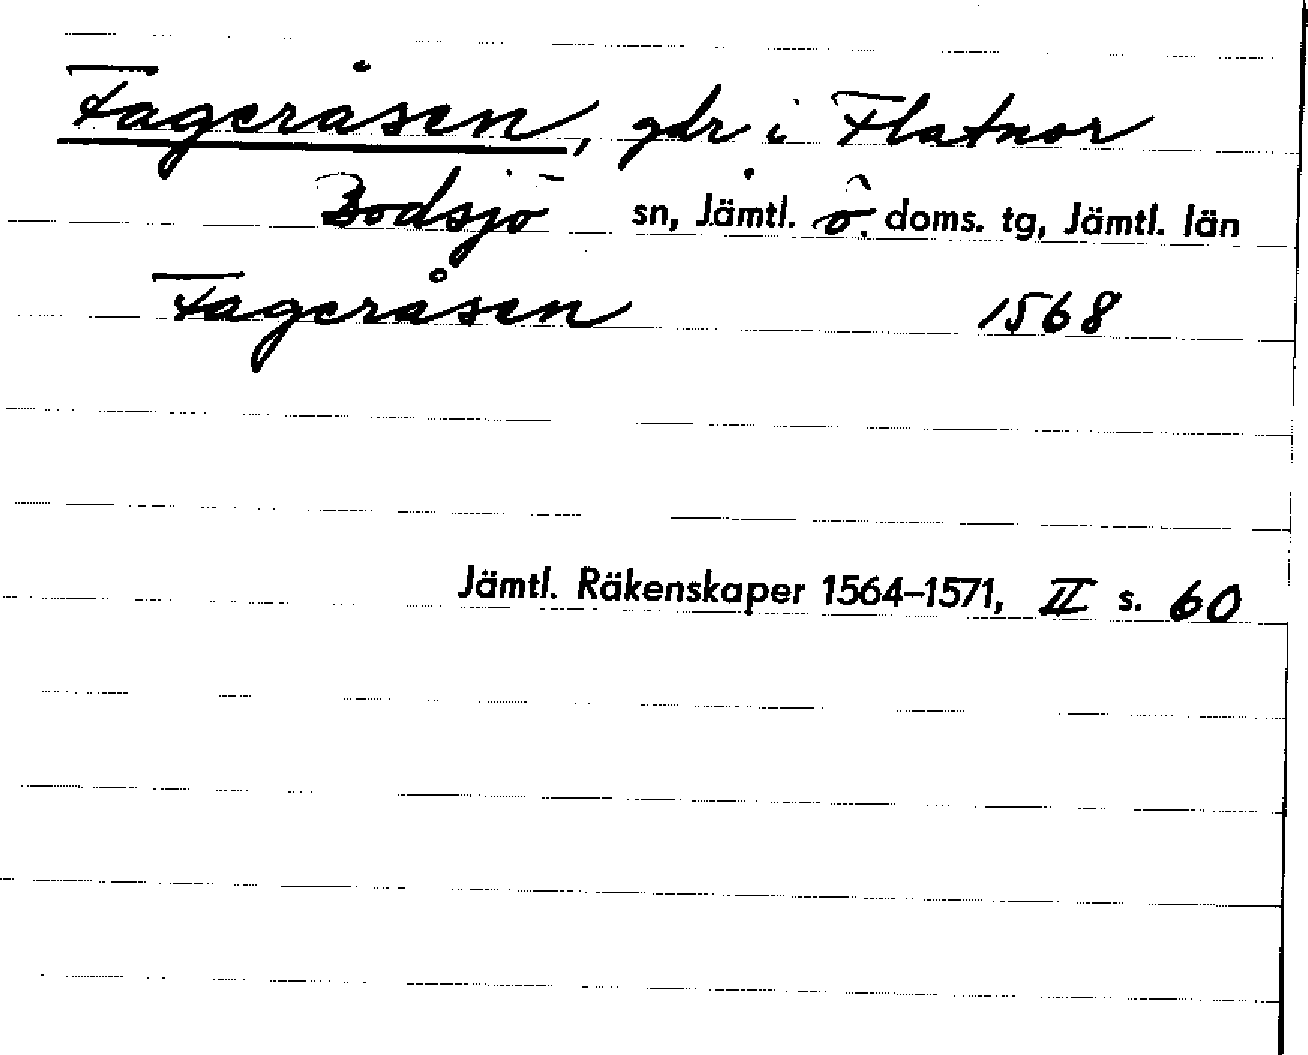 Fageråsen, gdr i Flatnor
Bodsjö sn, Jämtl. ö. doms. tg, Jämtl. län
Fageråsen 1568
Jämtl. Räkenskaper 1564–1571, II s. 60